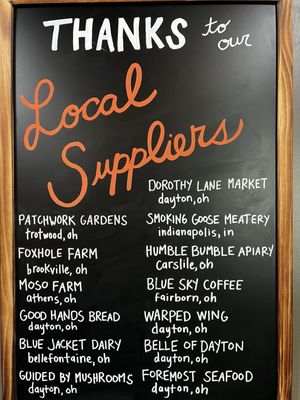 THANKS to
our
Local
Suppliers
PATCHWORK GARDENS
trotwood, oh
FOXHOLE FARM
brookville, oh
MOSO FARM
athens, oh
GOOD HANDS BREAD
dayton, oh
BLUE JACKET DAIRY
bellefontaine, oh
GUIDED BY MUSHROOMS
dayton, oh
DOROTHY LANE MARKET
dayton, oh
SMOKING GOOSE MEATERY
indianapolis, in
HUMBLE BUMBLE APIARY
carslile, oh
BLUE SKY COFFEE
fairborn, oh
WARPED WING
dayton, oh
BELLE OF DAYTON
dayton, oh
FOREMOST SEAFOOD
dayton, oh